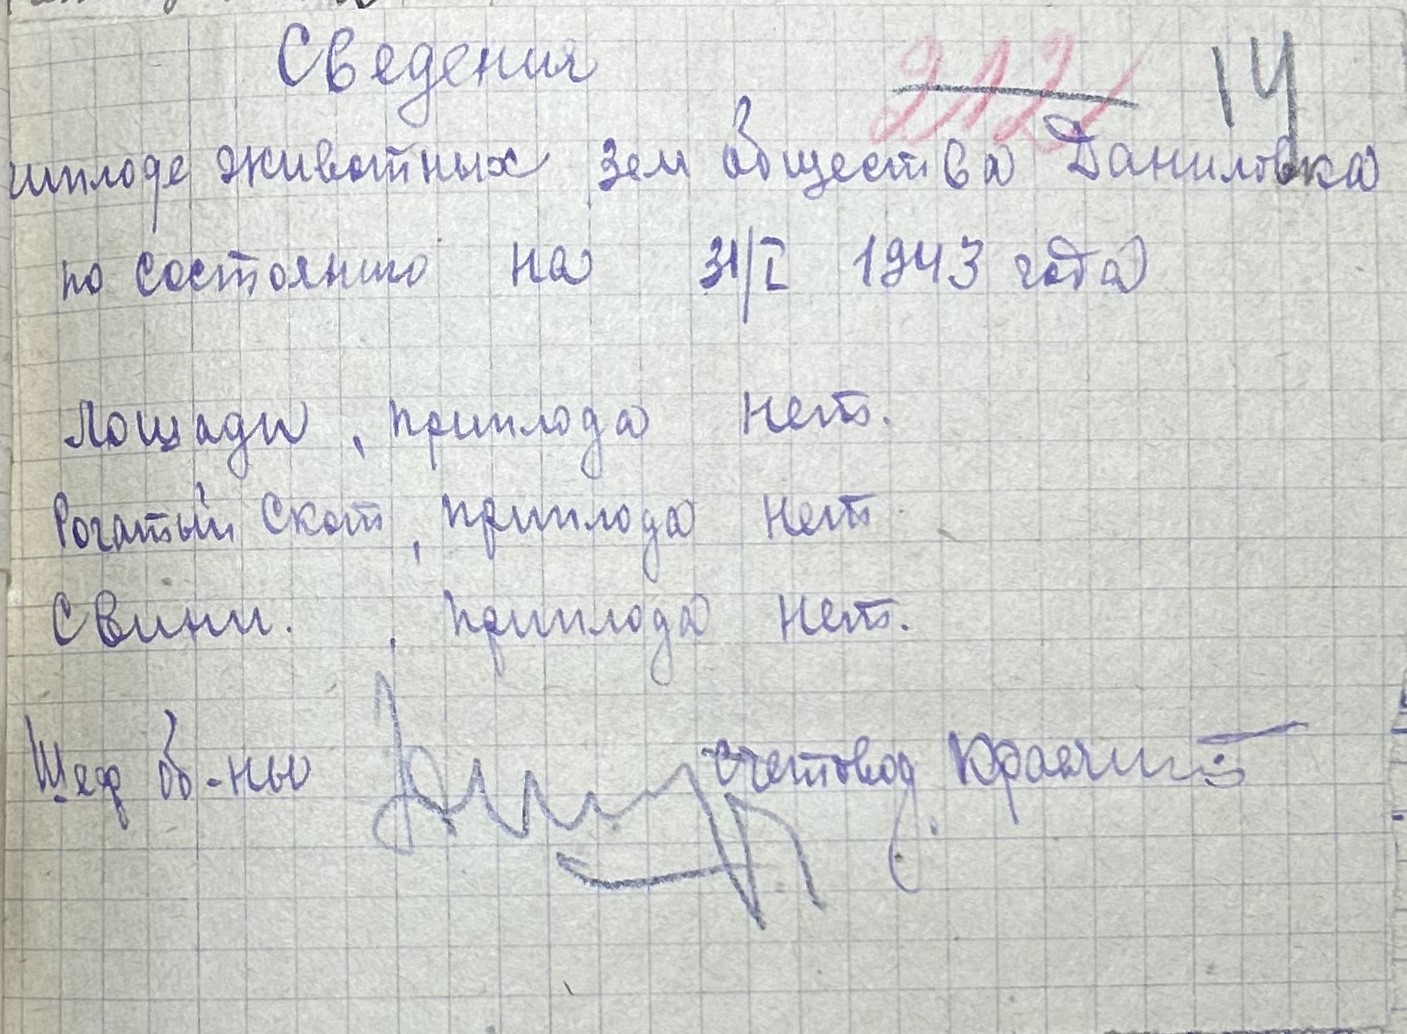 Сведения
212 14
иплоде животных зем общества Даниловка
по состоянию на 31/I 1943 года
Лошади, приплода нет.
Рогатый скот, приплода нет
Свини. , приплода нет.
об-ны счетовод